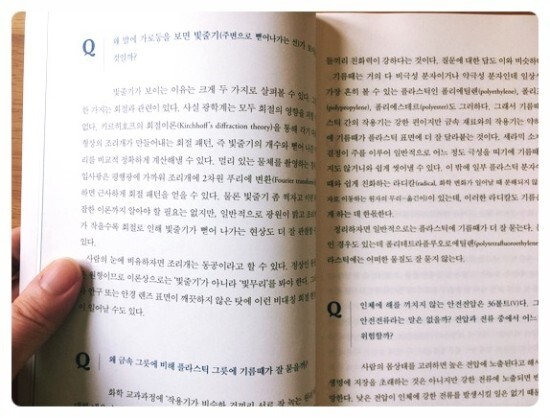 Q
왜 밤에 가로등을 보면 빛줄기(주변으로 뻗어나가는 선)가
걸까?
빛줄기가 보이는 이유는 크게 두 가지로 살펴볼 수 있다.
한 가지는 회절과 관련이 있다. 사실 광학계는 모두 회절의 영향을
없다. 키르히호프의 회절이론(Kirchhoff's diffraction theory)을 통해
형상의 조리개가 만들어내는 회절 패턴, 즉 빛줄기의 개수와 뻗어
리를 비교적 정확하게 계산해낼 수 있다. 멀리 있는 물체를 촬영하는
입사광은 평행광에 가까워 조리개에 2차원 푸리에 변환(Fourier
하면 근사하게 회절 패턴을 얻을 수 있다. 물론 빛줄기 좀 찍자고
잡한 이론까지 알아야 할 필요는 없지만, 일반적으로 광원이 밝고
가 작을수록 회절로 인해 빛줄기가 뻗어 나가는 현상도 더 잘
있다.
사람의 눈에 비유하자면 조리개는 동공이라고 할 수 있다.
원형이므로 이론상으로는 '빛줄기'가 아니라 '빛무리'를 봐야 한다.
안구 또는 안경 렌즈 표면이 깨끗하지 않은 탓에 이런 비대칭 회절
이 일어날 수도 있다.
Q
왜 금속 그릇에 비해 플라스틱 그릇에 기름때가 잘 묻을까?
화학 교과과정에
들끼리 친화력이 강하다는 것이다. 질문에 대한 답도 이와 비슷하
기름때는 거의 다 비극성 분자이거나 약극성 분자인데 일상
가장 흔히 볼 수 있는 플라스틱인 폴리에틸렌(polyethylene),
(polypropylene), 폴리에스테르(polyester)도 그러하다. 그래서 기름때
스틱 간의 작용기는 강한 편이지만 금속 재료와의 작용기는 약
에 기름때가 플라스틱 표면에 더 잘 달라붙는 것이다. 세라믹 소
결정이 주를 이루어 일반적으로 어느 정도 극성을 띠기에 기름때
지도 않거니와 쉽게 씻어낼 수 있다. 이 밖에 일부 플라스틱 분자
때와 쉽게 친화하는 라디칼(radical, 화학 변화가 일어날 때 분해되지 않
이동하는 원자의 무리)이 있는데, 이러한 라디칼도 기름
게 하는 데 한몫한다.
정리하자면 일반적으로는 플라스틱에 기름때가 더 잘 묻는다.
인 경우도 있는데 폴리테트라플루오로에틸렌(polytetrafluoroethylene)
라스틱에는 어떠한 물질도 잘 묻지 않는다.
Q
인체에 해를 끼치지 않는 안전전압은 36볼트(V)다.
안전전류라는 말은 없을까? 전압과 전류 중에서 어느
위험할까?
사람의 몸상태를 고려하면 높은 전압에 노출된다고 해서
생명에 지장을 초래하는 것은 아니지만 강한 전류에 노출되면
한다. 낮은 전압이 인체에 강한 전류를 발생시킬 일은 없기 때문